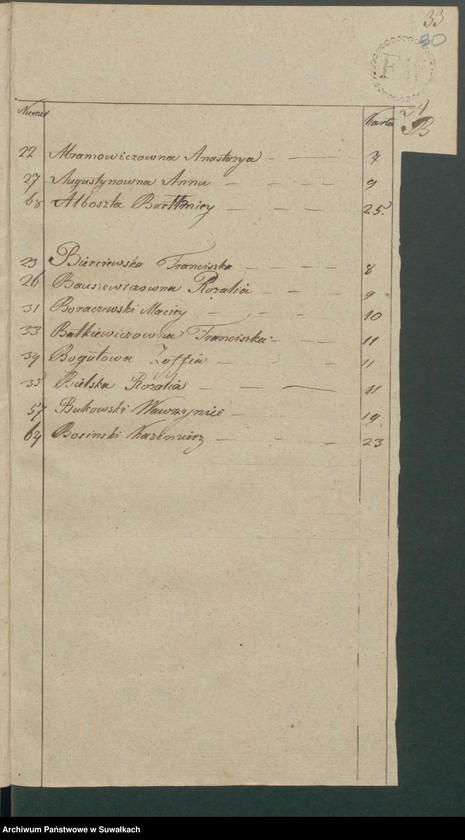 33
80
Numer Karta
A
B
22 Abramowiczowna Anastazya 7
27 Augustynowna Anna 9
68 Alboszta Bartłmiey 25
23 Franciszka 8
26 Rozalia 9
31 Boraczewski Maciey 10
33 Butkiewiczowna Franciszka 11
34 Zoffia 11
35 Bielska Rozalia 11
57 Bukowski Wawrzyniec 19
64 Bosinski Kazimierz 23
Archiwum Państwowe w Suwałkach